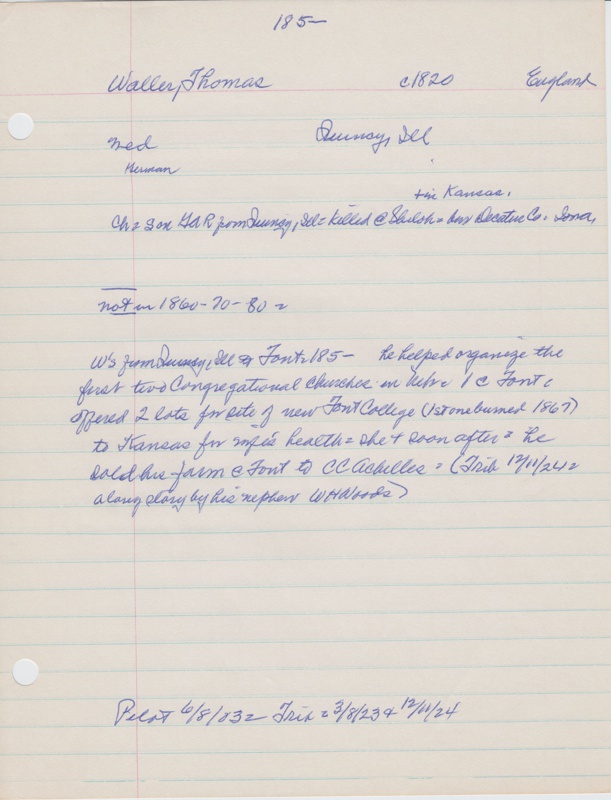 185-
Waller, Thomas c1820 England
med Quincy, Ill
Herman
+ in Kansas.
Ch = son GAR from Quincy, Ill = Killed @ Shiloh = bro Decatur Co. Iowa,
not in 1860-70-80 =
W's from Quincy, Ill Font. 185- he helped organize the
first two Congregational Churches in Nebr. 1 @ Font,
offered 2 lots for site of new Font College (1st one burned 1867)
to Kansas for wife's health = she + soon after = he
sold his farm @ Font to CC Achilles = (Trib 12/11/24 =
a long story by his nephew WH Woods)
Pilot 6/8/ = Trib = 3/8/23 + 12/11/24